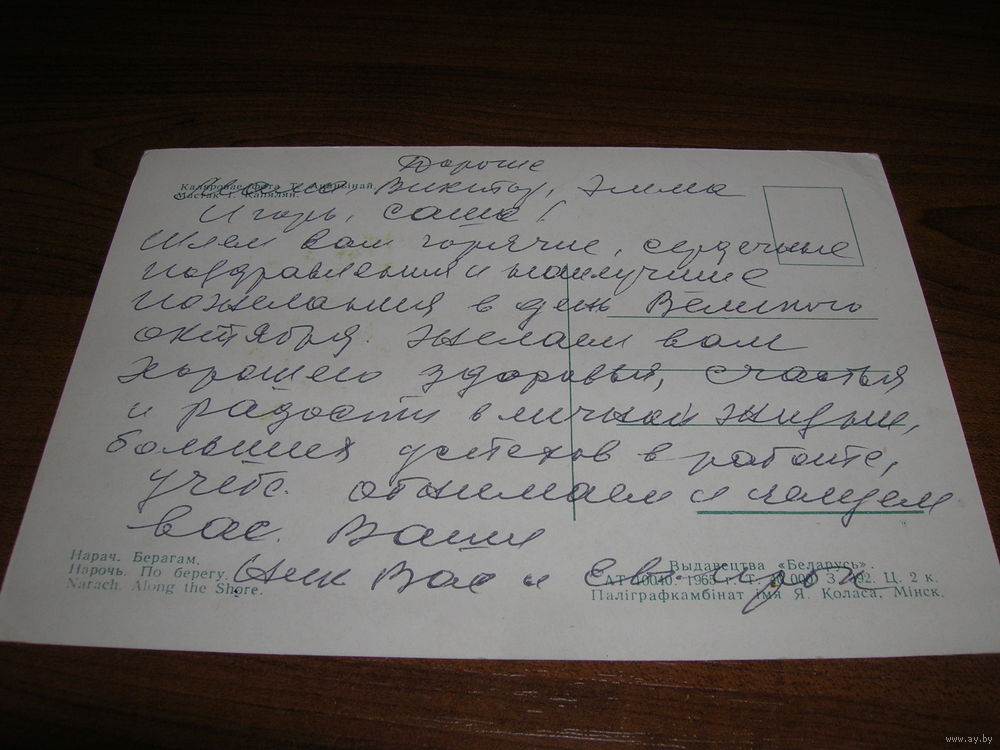 Дорогие
Каляровае фота У. Ананьінай.
Виктор, Эмма
Мастак І. Капялян.
Игорь, Саша!
Шлем вам горячие, сердечные
поздравления и наилучшие
пожелания в день Великого
октября. Желаем вам
хорошего здоровья, счастья
и радости в личной жизни,
больших успехов в работе,
учёбе. Обнимаем и целуем
вас. Ваши
Нарач. Берагам.
Нарочь. По берегу.
Narach. Along the Shore.
Ник Вас и
Выдавецтва «Беларусь».
АТ 10040. 1965 г. Т. Ц. 2 к.
Паліграфкамбінат імя Я. Коласа, Мінск.
www.ay.by